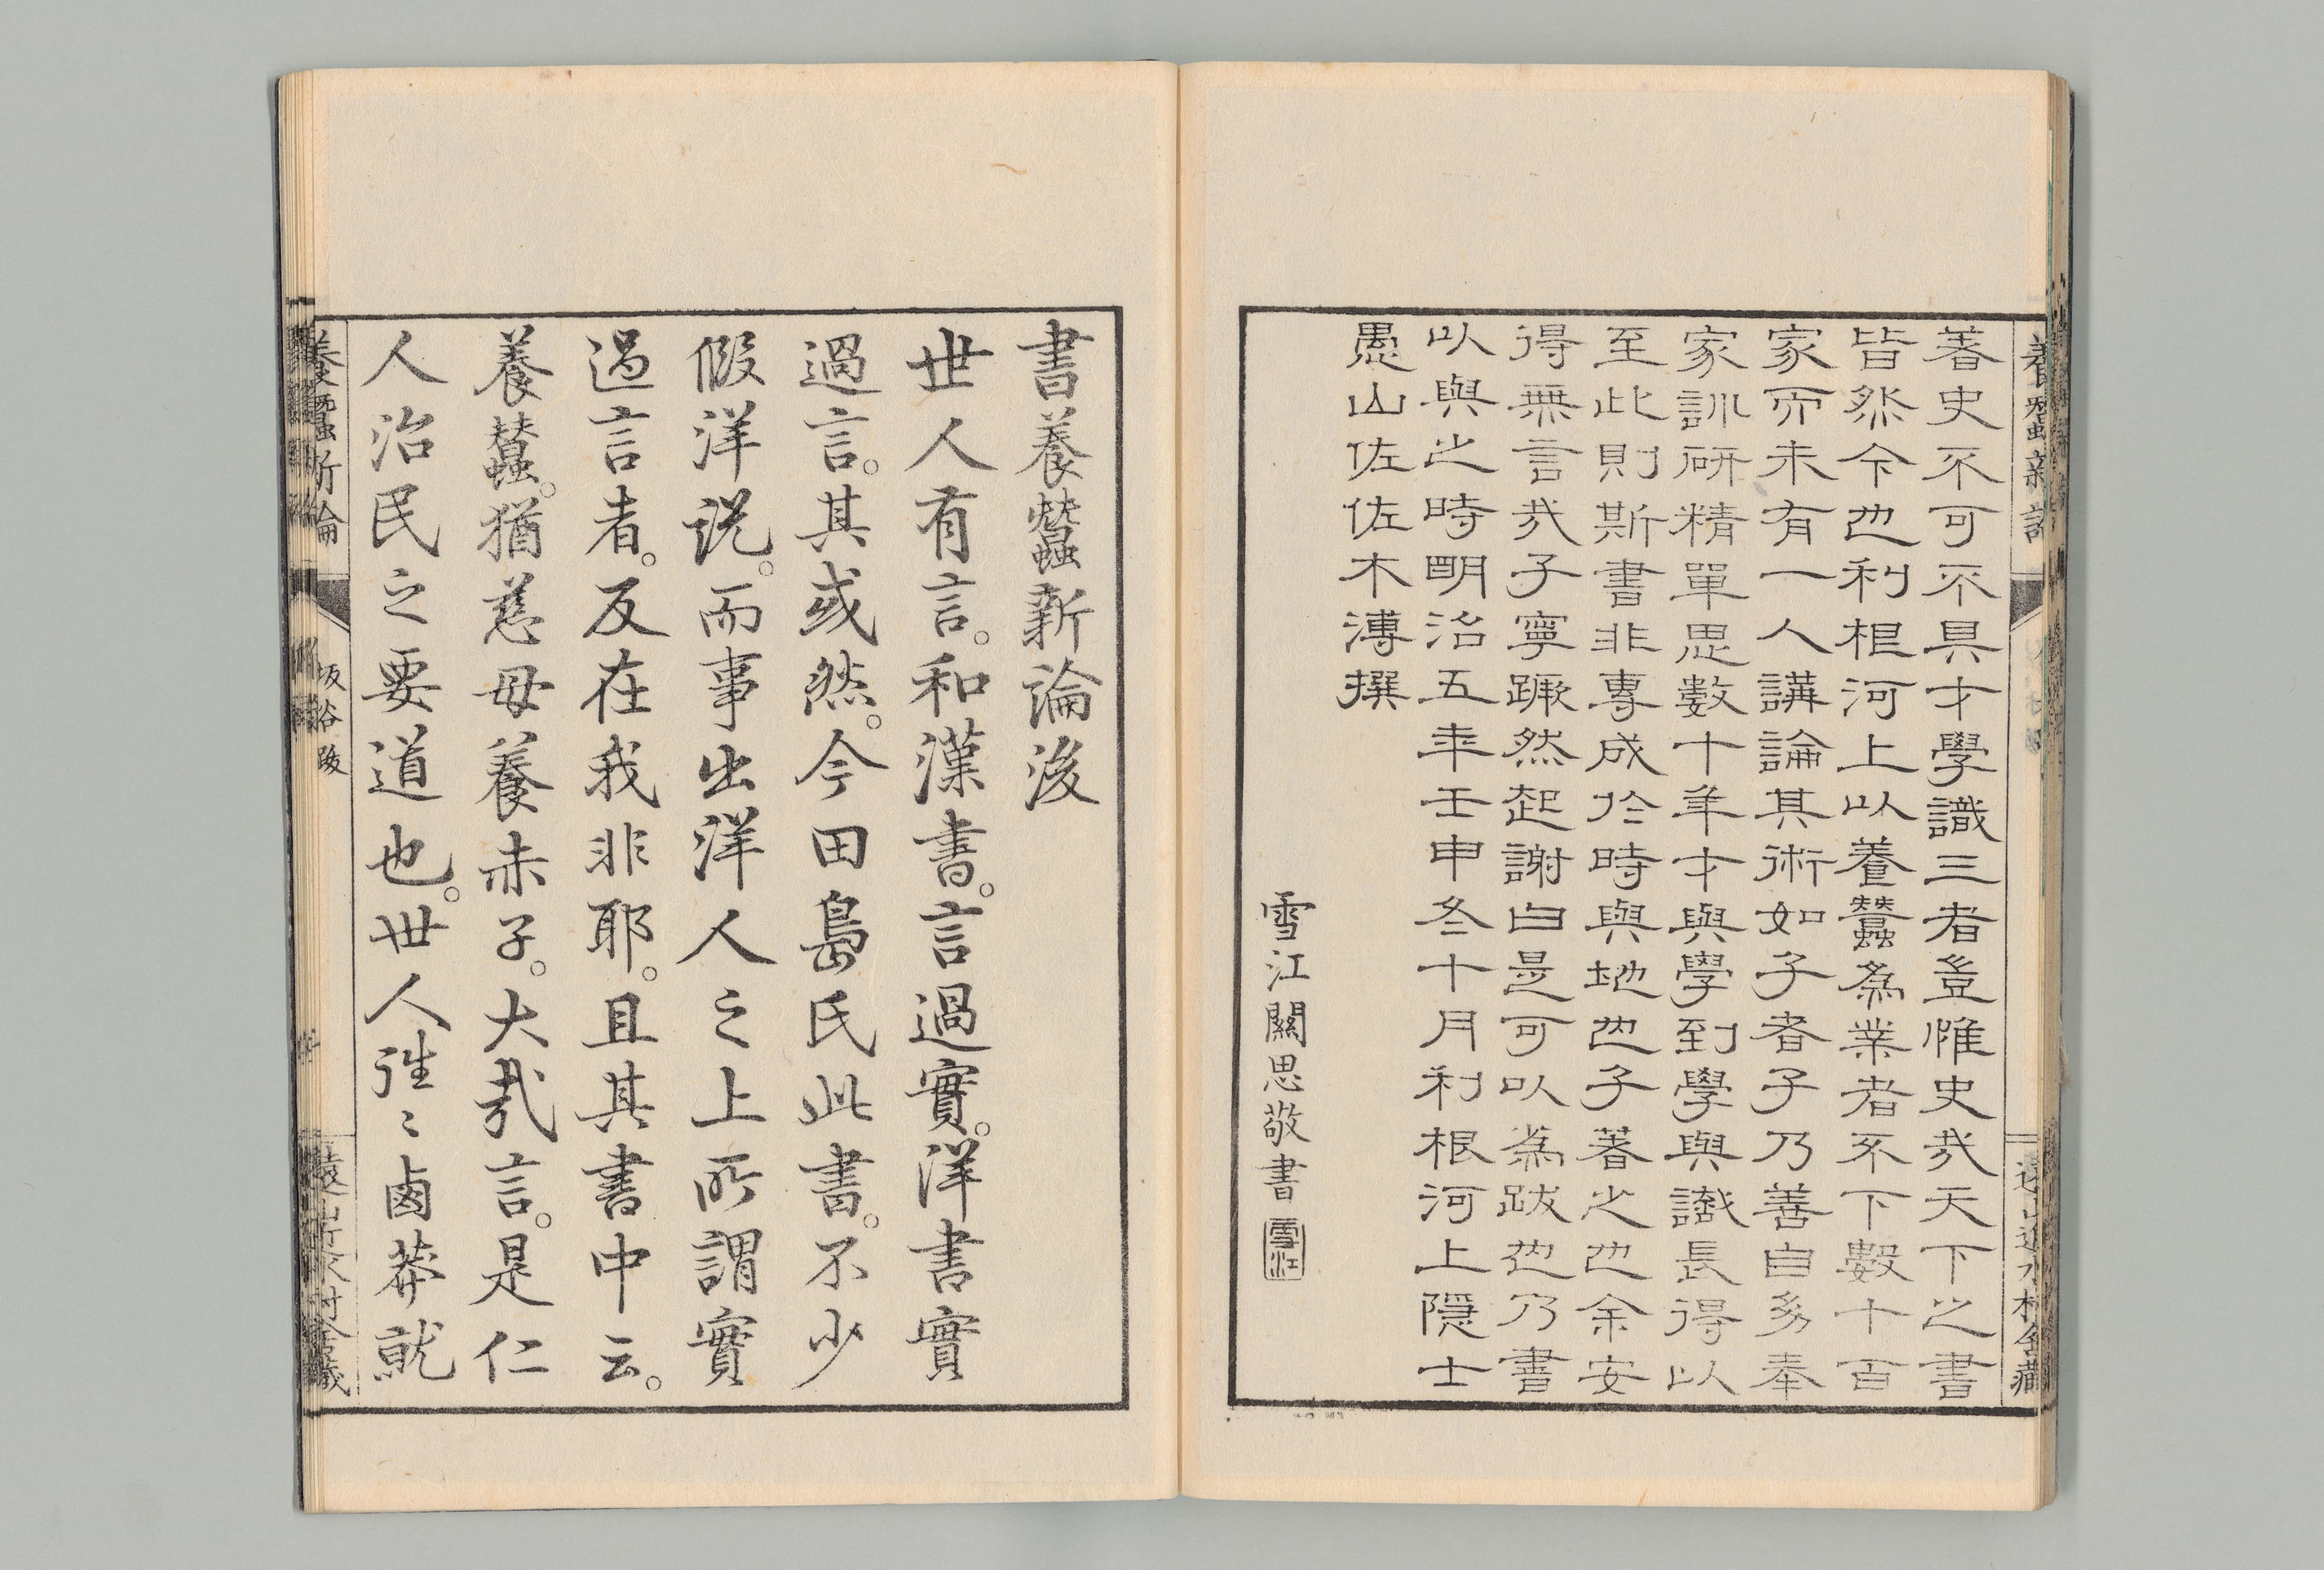 著史不可不具才學識三者豈惟史哉天下之書
皆然今也利根河上以養蠶為業者不下數十百
家而未有一人講論其術如子者子乃善自奉
家訓研精單思數十年才與學到學與識長得以
至此則斯書非專成於時與地也子著之也余安
得無言哉子寧蹶然起謝曰是可以為跋也乃書
以與之時明治五年壬申冬十月利根河上隱士
愚山佐佐木溥撰
雪江關思敬書
雪江
書養蠶新論後
世人有言。和漢書。言過實。洋書實
過言。其或然。今田島氏此書。不少
假洋說。而事出洋人之上所謂實
過言者。反在我非耶。且其書中云。
養蠶。猶慈母養赤子。大哉言。是仁
人治民之要道也。世人往〻鹵莽就
養蠶新論
坂谷跋